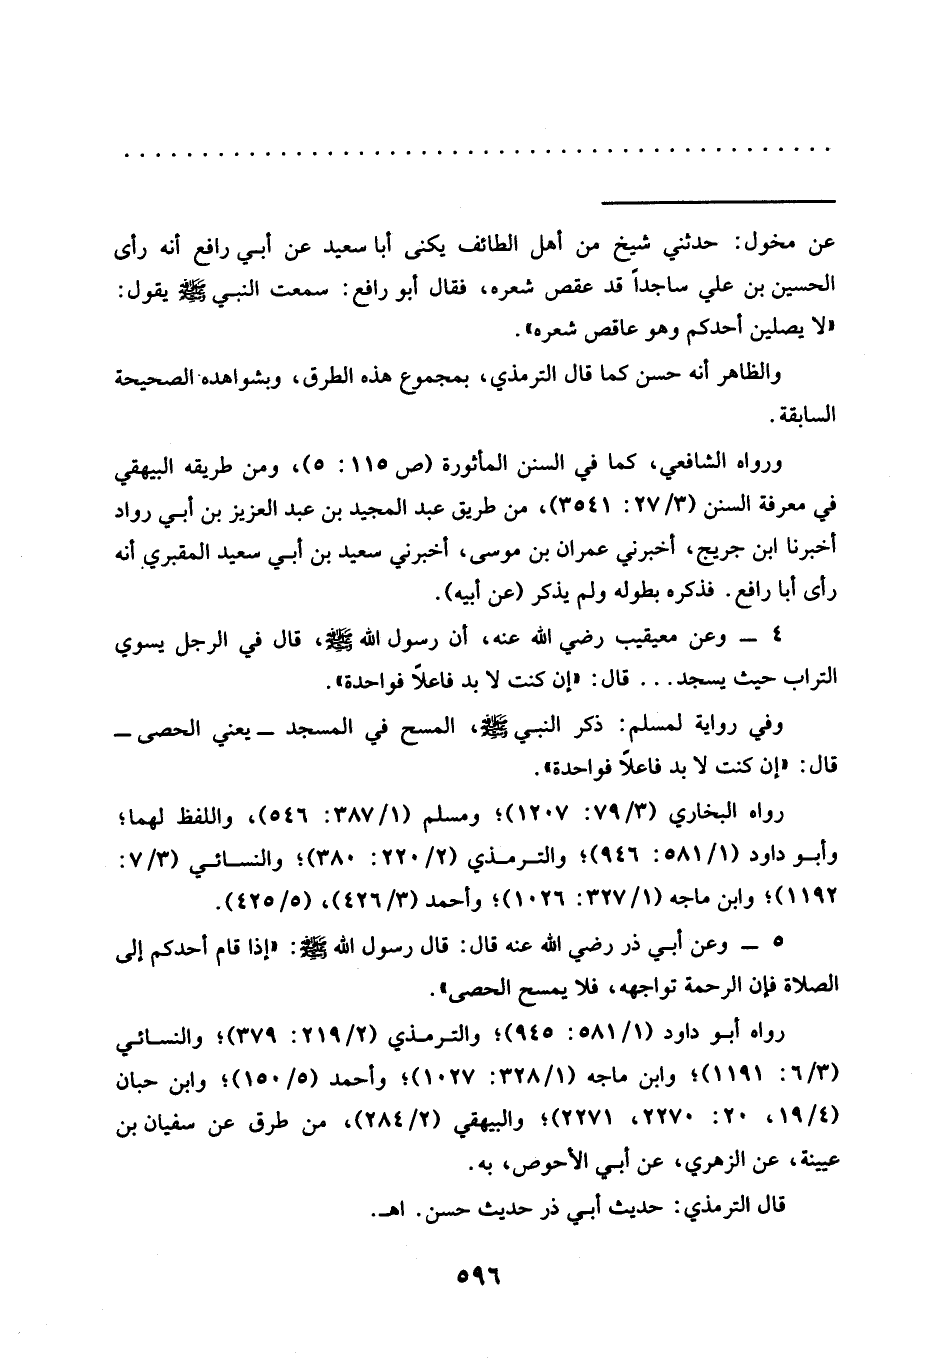 . . . . . . . . . . . . . . . . . . . . . . . . . . . . . . . . . . . . . . . . . . . . . .
عن مخول: حدثني شيخ من أهل الطائف يكنى أبا سعيد عن أبي رافع أنه رأى
الحسين بن علي ساجداً قد عقص شعره، فقال أبو رافع: سمعت النبي ﷺ يقول:
«لا يصلين أحدكم وهو عاقص شعره».
والظاهر أنه حسن كما قال الترمذي، بمجموع هذه الطرق، وبشواهده الصحيحة
السابقة.
ورواه الشافعي، كما في السنن المأثورة (ص ١١٥: ٥)، ومن طريقه البيهقي
في معرفة السنن (٢٧/٣: ٣٥٤١)، من طريق عبد المجيد بن عبد العزيز بن أبي رواد
أخبرنا ابن جريج، أخبرني عمران بن موسى، أخبرني سعيد بن أبي سعيد المقبري أنه
رأى أبا رافع. فذكره بطوله ولم يذكر (عن أبيه).
٤ ــ وعن معيقيب رضي الله عنه، أن رسول الله ﷺ، قال في الرجل يسوي
التراب حيث يسجد... قال: «إن كنت لا بد فاعلاً فواحدة».
وفي رواية لمسلم: ذكر النبي ﷺ، المسح في المسجد ــ يعني الحصى ــ
قال: «إن كنت لا بد فاعلاً فواحدة».
رواه البخاري (٧٩/٣: ١٢٠٧)؛ ومسلم (٣٨٧/١: ٥٤٦)، واللفظ لهما؛
وأبو داود (٥٨١/١: ٩٤٦)؛ والترمذي (٢٢٠/٢: ٣٨٠)؛ والنسائي (٧/٣:
١١٩٢)؛ وابن ماجه (٣٢٧/١: ١٠٢٦)؛ وأحمد (٤٢٦/٣)، (٤٢٥/٥).
٥ ــ وعن أبي ذر رضي الله عنه قال: قال رسول الله ﷺ: «إذا قام أحدكم إلى
الصلاة فإن الرحمة تواجهه، فلا يمسح الحصى».
رواه أبو داود (٥٨١/١: ٩٤٥)؛ والترمذي (٢١٩/٢: ٣٧٩)؛ والنسائي
(٦/٣: ١١٩١)؛ وابن ماجه (٣٢٨/١: ١٠٢٧)؛ وأحمد (١٥٠/٥)؛ وابن حبان
(١٩/٤، ٢٠: ٢٢٧٠، ٢٢٧١)؛ والبيهقي (٢٨٤/٢)، من طرق عن سفيان بن
عيينة، عن الزهري، عن أبي الأحوص، به.
قال الترمذي: حديث أبي ذر حديث حسن. اهـ.
٥٩٦